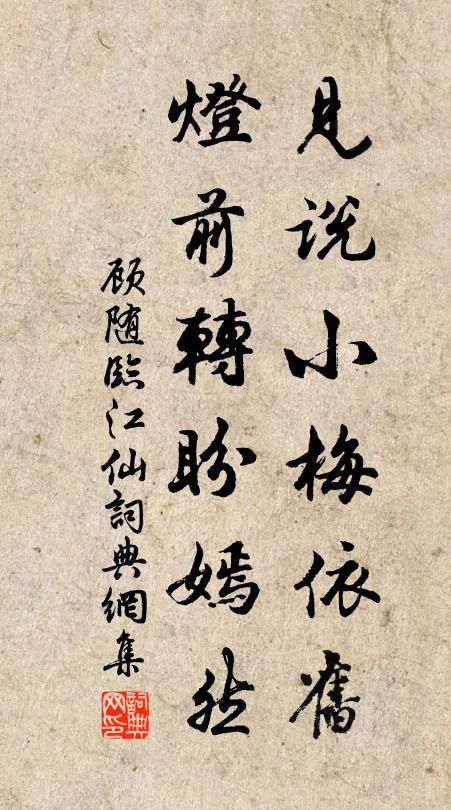 見說小梅依舊
燈前轉盼嫣然
顾随臨江仙詞典網集
詞典网印